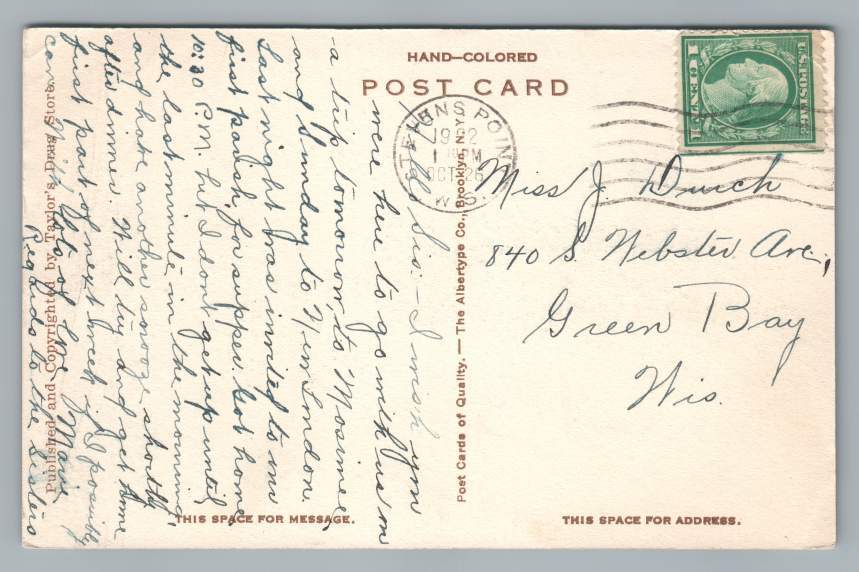 HAND—COLORED
POST CARD
U.S. POSTAGE
1 CENT 1
STEVENS POINT
1922
PM
OCT 26
WIS.
Miss J. Durch
840 S. Webster Ave.,
Green Bay
Wis.
Hello Sis:- I wish you
were here to go with us on
a trip tomorrow, to Mosinee
and Sunday to New London.
Last night was invited to our
first parish for supper. Got home
10:30 P.M. but I don't get up until
the last minute in the morning
and have another snooze shortly
after dinner. Will try and get home
first part of next week if I possibly
can. With lots of love Marie
Regards to the Sisters
Published and Copyrighted by Taylor's Drug Store.
Post Cards of Quality. — The Albertype Co., Brooklyn, N.Y.
THIS SPACE FOR MESSAGE.
THIS SPACE FOR ADDRESS.